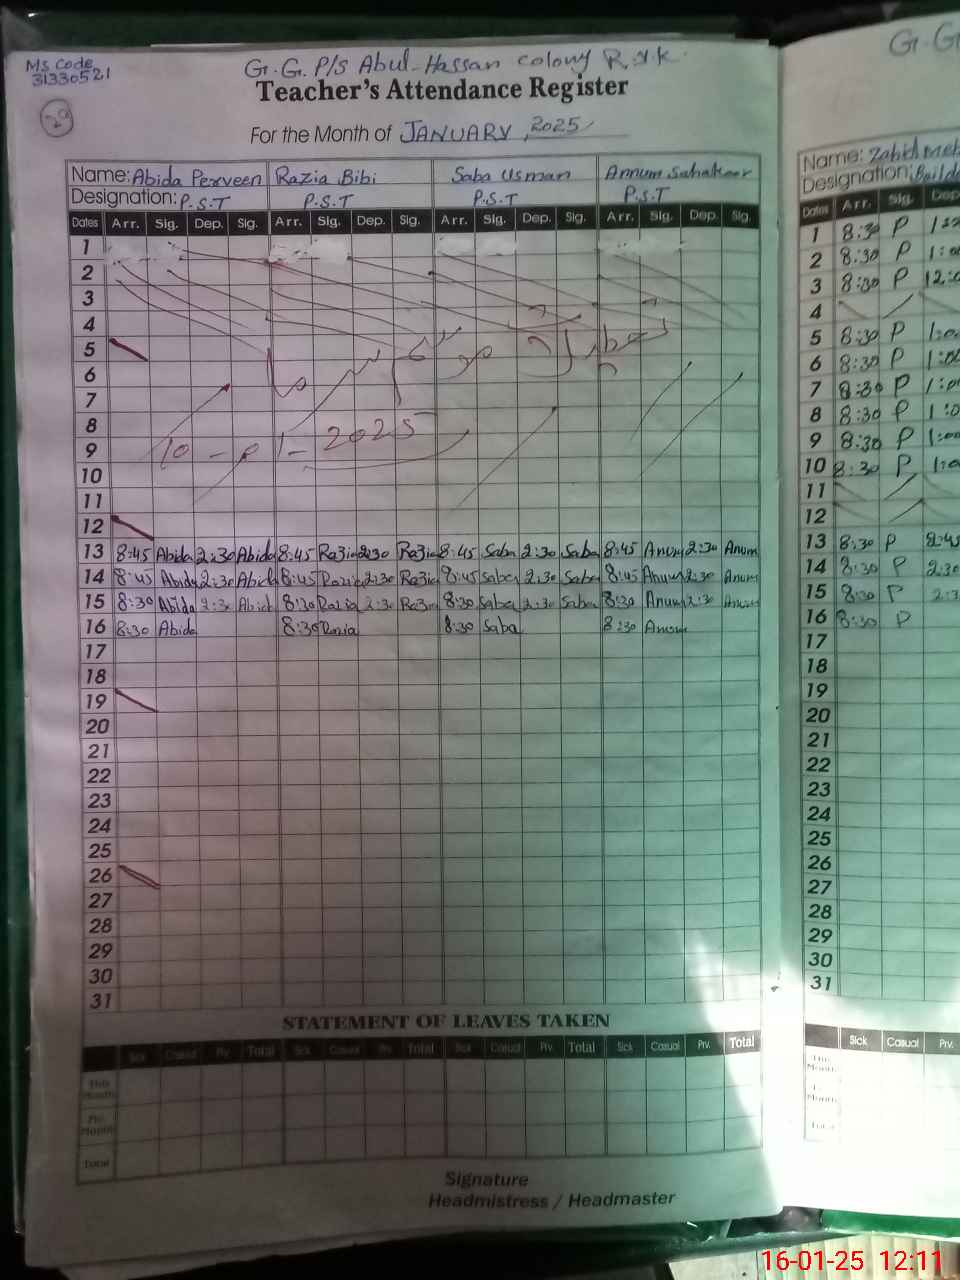 Ms Code
31330521
G.G. P/S Abul-Hassan colony R.Y.K.
Teacher's Attendance Register
For the Month of JANUARY, 2025
Name: Abida Perveen Razia Bibi Saba Usman Annum
Designation: P.S.T P.S.T P.S.T P.S.T
Dates Arr. Sig. Dep. Sig. Arr. Sig. Dep. Sig. Arr. Sig. Dep. Sig. Arr. Sig. Dep. Sig.
1
2
3
4
5
6
7
8
9 10-01-2025
10
11
12
13 8:45 Abida 2:30 Abida 8:45 Razia 2:30 Razia 8:45 Saba 2:30 Saba 8:45 Anum 2:30 Anum
14 8:45 Abida 2:30 Abida 8:45 Razia 2:30 Razia 8:45 Saba 2:30 Saba 8:45 Anum 2:30 Anum
15 8:30 Abida 2:30 Abida 8:30 Razia 2:30 Razia 8:30 Saba 2:30 Saba 8:30 Anum 2:30 Anum
16 8:30 Abida 8:30 Razia 8:30 Saba 8:30 Anum
17
18
19
20
21
22
23
24
25
26
27
28
29
30
31
STATEMENT OF LEAVES TAKEN
Sick Casual Prv. Total Sick Casual Prv. Total Sick Casual Prv. Total Sick Casual Prv. Total
This Month
Pre. Month
Total
Signature
Headmistress / Headmaster
G.G
Name:
Designation:
Dates Arr. Sig. Dep
1 8:30 P
2 8:30 P 1:00
3 8:30 P
4
5 8:30 P 1:00
6 8:30 P 1:00
7 8:30 P 1:00
8 8:30 P 1:0
9 8:30 P 1:00
10 8:30 P 1:00
11
12
13 8:30 P
14 8:30 P 2:30
15 8:30 P 2:3
16 8:30 P
17
18
19
20
21
22
23
24
25
26
27
28
29
30
31
Sick Casual Prv.
Month
Month
Total
16-01-25 12:11